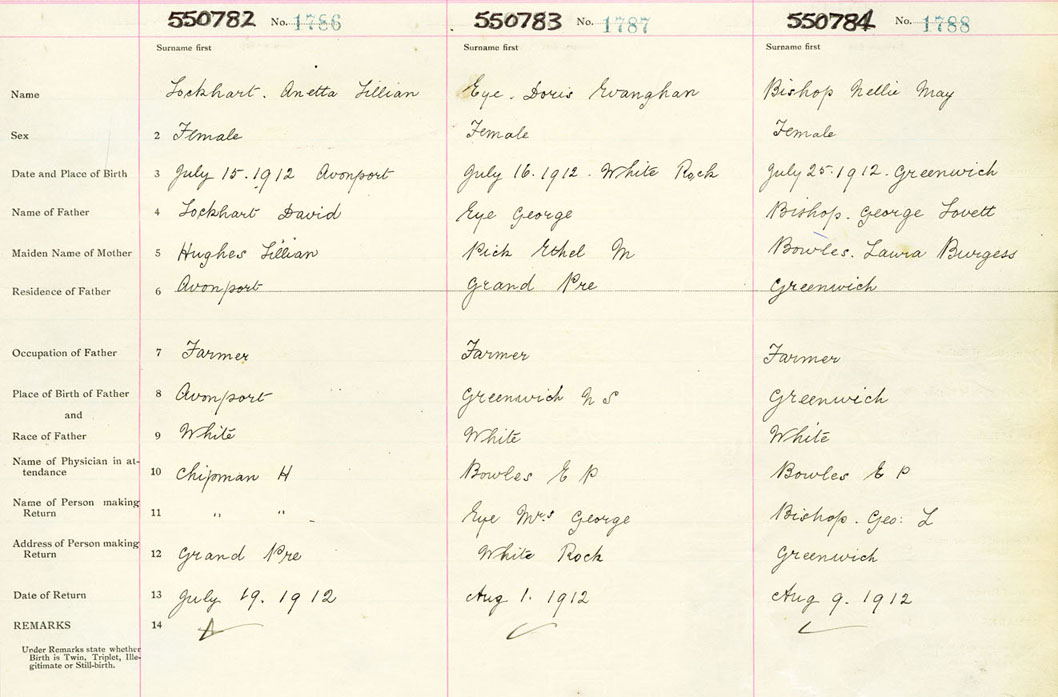 550782 No. 1786 550783 No. 1787 550784 No. 1788
Surname first Surname first Surname first
Name Lockhart. Anetta Lillian Eye. Doris Evanghan Bishop Nellie May
Sex 2 Female Female Female
Date and Place of Birth 3 July 15. 1912 Avonport July 16. 1912. White Rock July 25. 1912. Greenwich
Name of Father 4 Lockhart David Eye George Bishop. George Lovett
Maiden Name of Mother 5 Hughes Lillian Rick Ethel M Bowles. Laura Burgess
Residence of Father 6 Avonport Grand Pre Greenwich
Occupation of Father 7 Farmer Farmer Farmer
Place of Birth of Father 8 Avonport Greenwich N S Greenwich
and
Race of Father 9 White White White
Name of Physician in at-
tendance 10 Chipman H Bowles E P Bowles E P
Name of Person making
Return 11 " " Eye Mrs George Bishop. Geo: L
Address of Person making
Return 12 Grand Pre White Rock Greenwich
Date of Return 13 July 19. 1912 Aug 1. 1912 Aug 9. 1912
REMARKS 14
Under Remarks state whether
Birth is Twin, Triplet, Ille-
gitimate or Still-birth.